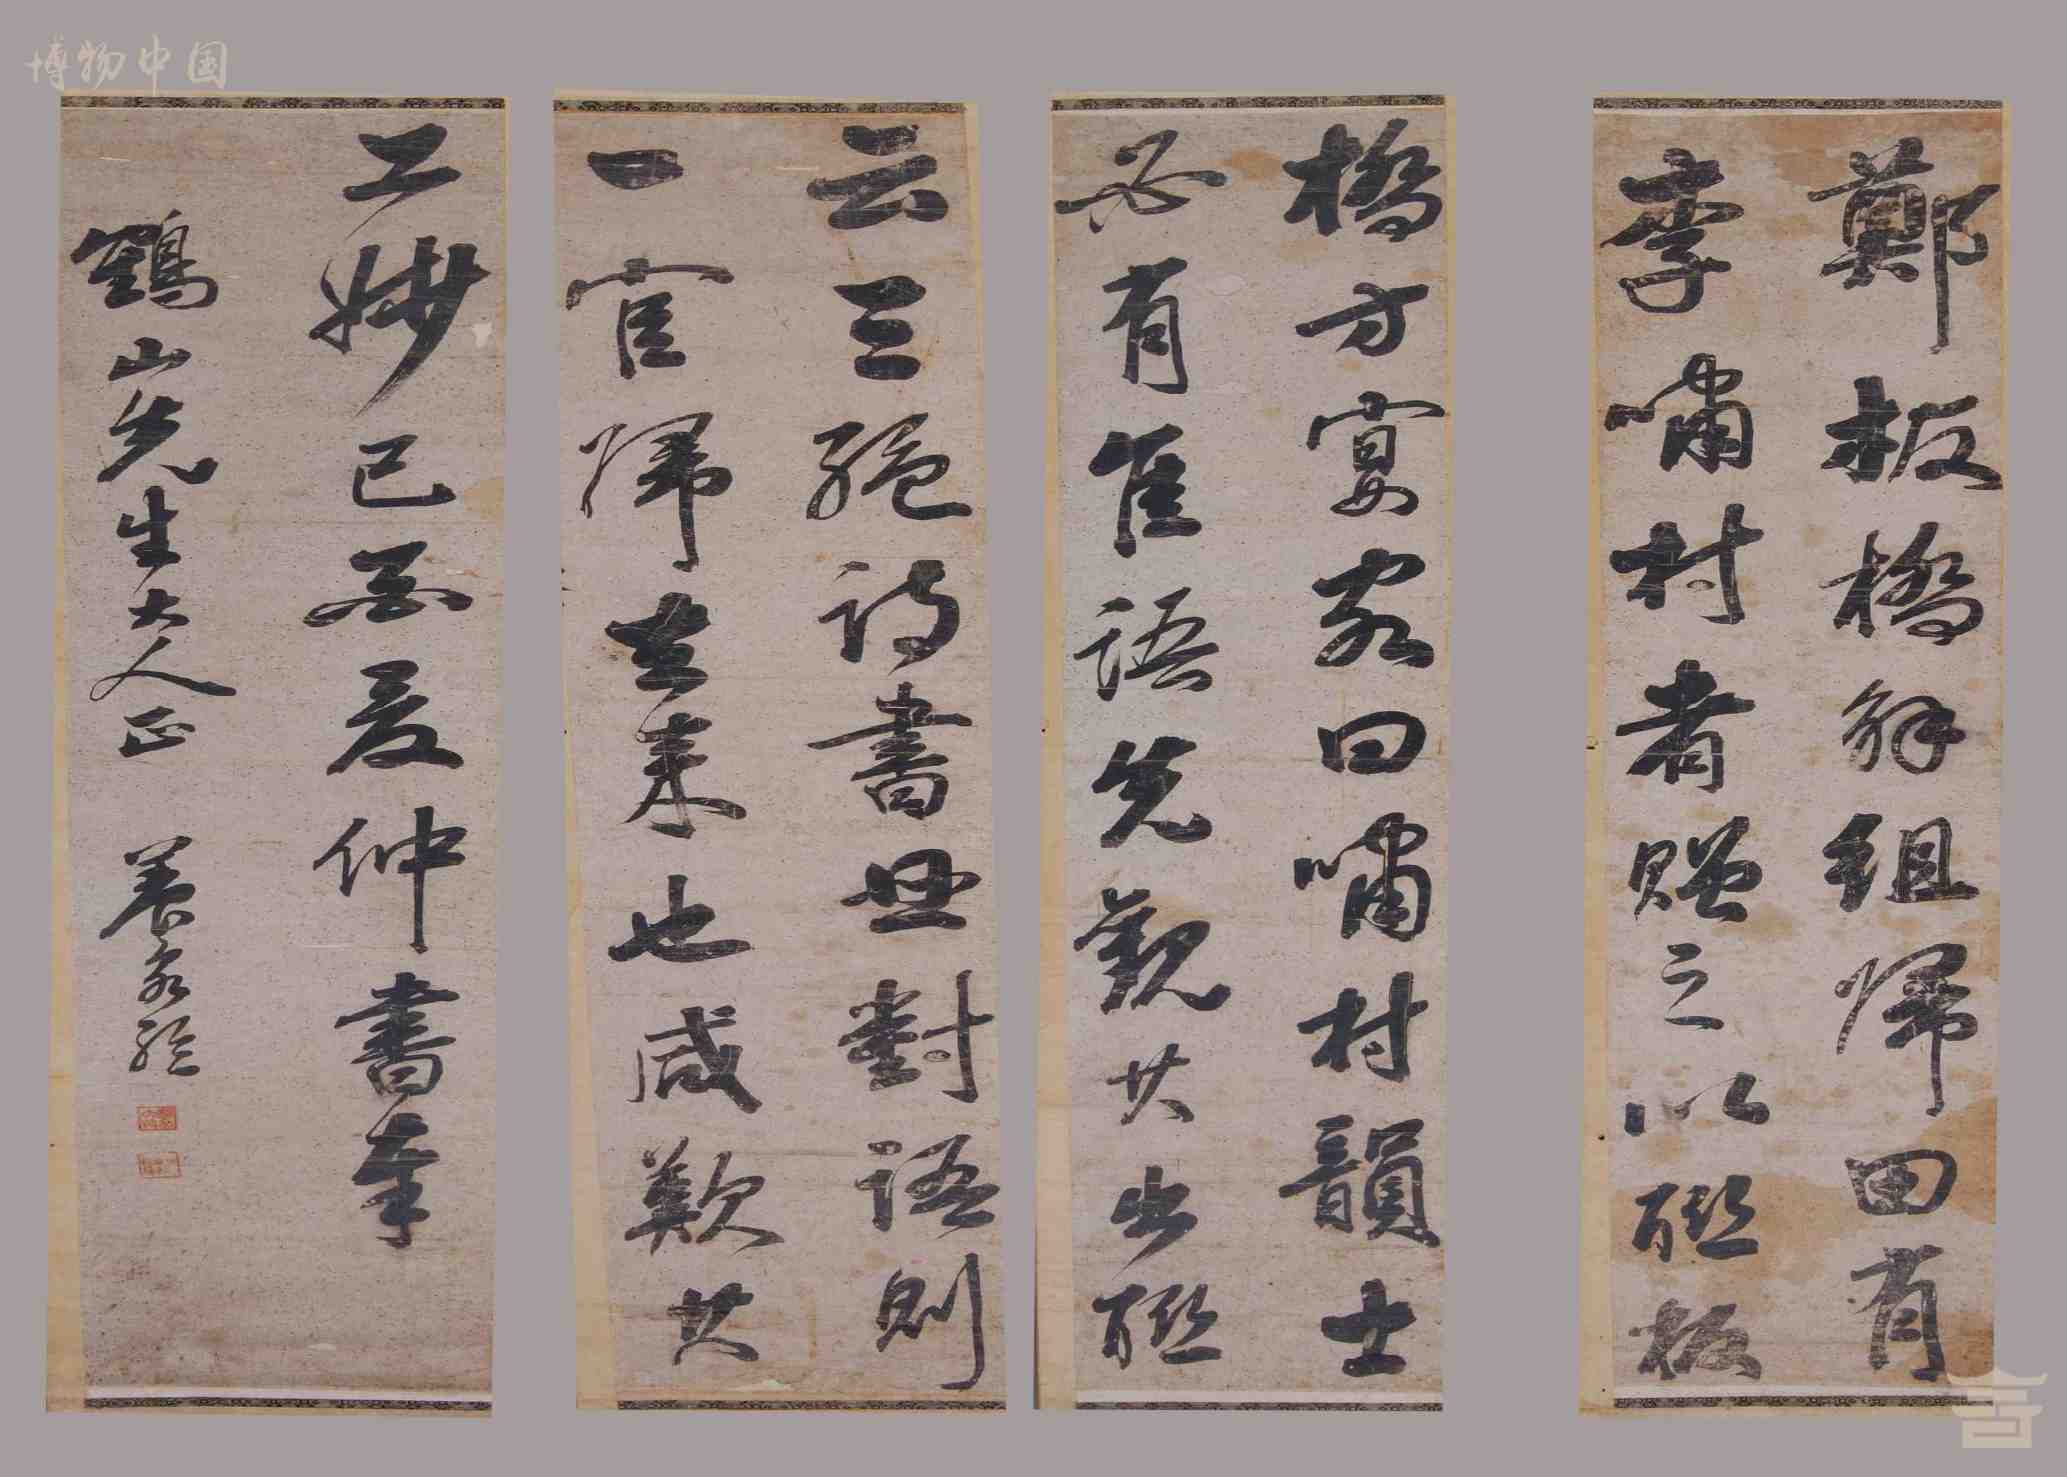 博物中国
鄭板橋解組歸田有
李嘯村者贈之以聯板
橋方宴客曰嘯村韻士
必有佳語先觀其出聯
云三絕詩書畫對語則
一官歸去來也咸歎其
工妙己亥夏仲書奉
鶴山先生大人正